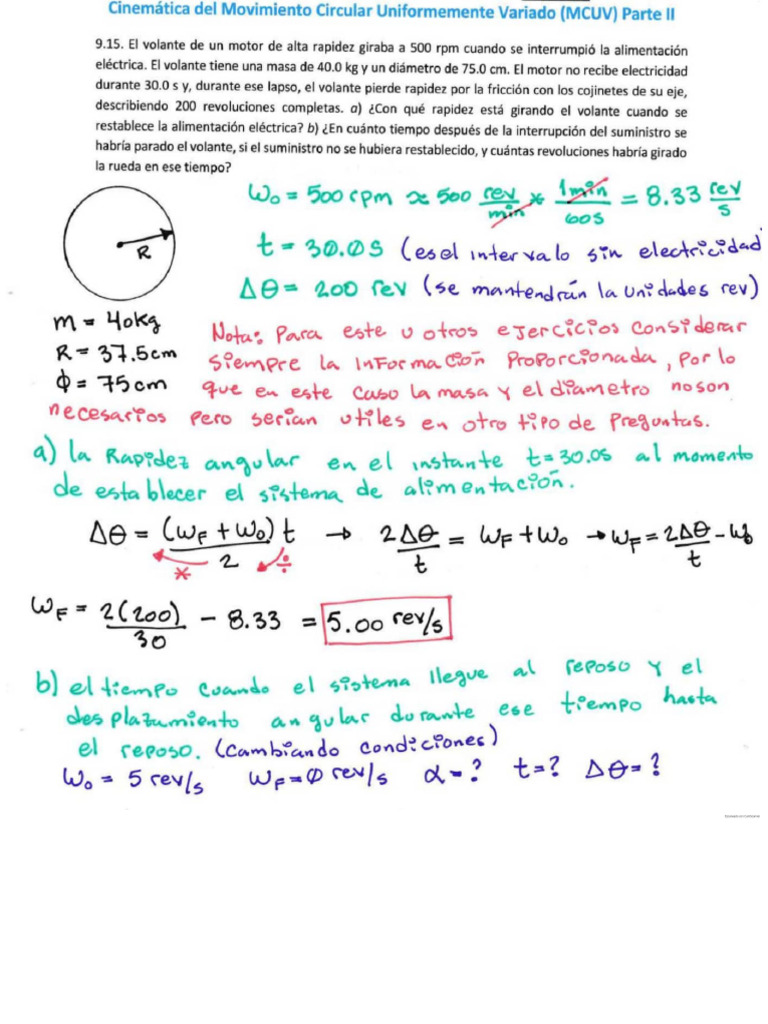 Cinemática del Movimiento Circular Uniformemente Variado (MCUV) Parte II
9.15. El volante de un motor de alta rapidez giraba a 500 rpm cuando se interrumpió la alimentación
eléctrica. El volante tiene una masa de 40.0 kg y un diámetro de 75.0 cm. El motor no recibe electricidad
durante 30.0 s y, durante ese lapso, el volante pierde rapidez por la fricción con los cojinetes de su eje,
describiendo 200 revoluciones completas. a) ¿Con qué rapidez está girando el volante cuando se
restablece la alimentación eléctrica? b) ¿En cuánto tiempo después de la interrupción del suministro se
habría parado el volante, si el suministro no se hubiera restablecido, y cuántas revoluciones habría girado
la rueda en ese tiempo?
ω₀ = 500 rpm ≈ 500 rev/min * 1min/60s = 8.33 rev/s
R
t = 30.0s (es el intervalo sin electricidad
Δθ = 200 rev (se mantendrán la unidades rev)
m = 40kg
R = 37.5cm
ϕ = 75cm
Nota: Para este u otros ejercicios considerar
siempre la información proporcionada, por lo
que en este caso la masa y el diametro no son
necesarios pero serian utiles en otro tipo de preguntas.
a) la Rapidez angular en el instante t=30.0s al momento
de establecer el sistema de alimentación.
Δθ = (ωF + ω₀)t / 2 → 2Δθ/t = ωF + ω₀ → ωF = 2Δθ/t - ω₀
* ÷
ωF = 2(200)/30 - 8.33 = 5.00 rev/s
b) el tiempo cuando el sistema llegue al reposo y el
desplazamiento angular durante ese tiempo hasta
el reposo. (cambiando condiciones)
ω₀ = 5 rev/s ωF = 0 rev/s α = ? t = ? Δθ = ?